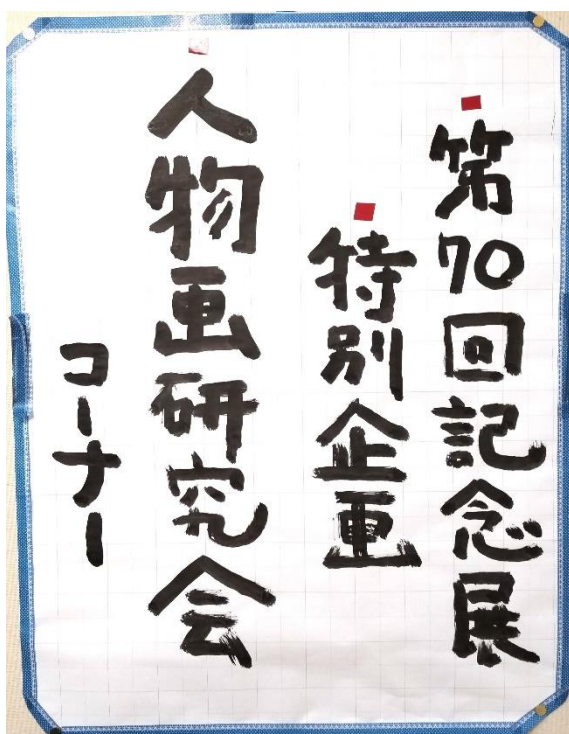 第70回記念展
特別企画
人物画研究会
コーナー